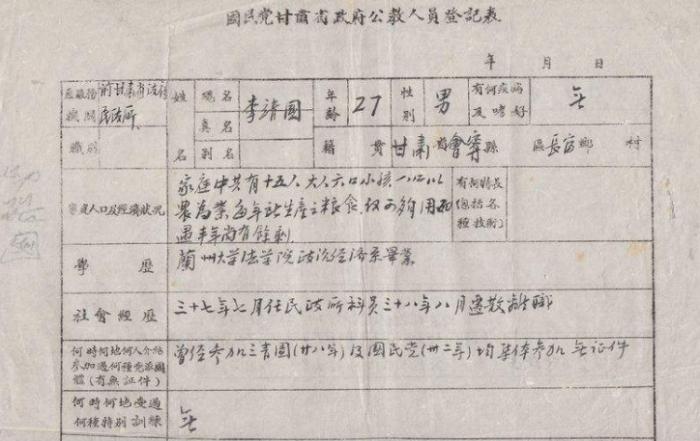 國民党甘肅省政府公教人員登記表
年 月 日
原服務機関 前甘肅省政府民政所 姓名 現名 李靖國 年齡 27 性別 男 有何疾病及嗜好 无
職别 真名 别名 籍貫 甘肅省會寧縣 區 長安鄉 村
家庭人口及經濟狀况 家庭中共有十五人大人六口小孩八口以 有何特長(包括各種技術)
農為業,每年所生產之粮食,仅可夠用而
遇丰年尚有餘剩.
學歷 蘭州大学法学院政治經济系畢業
社會經歷 三十七年七月任民政所科員三十八年八月遣散離職
何時何地何人介紹參加過何種党派團體(有無証件) 曾经參加三青團(廿八年)及國民党(卅二年)均集体參加无证件
何時何地受過何種特别訓練 无